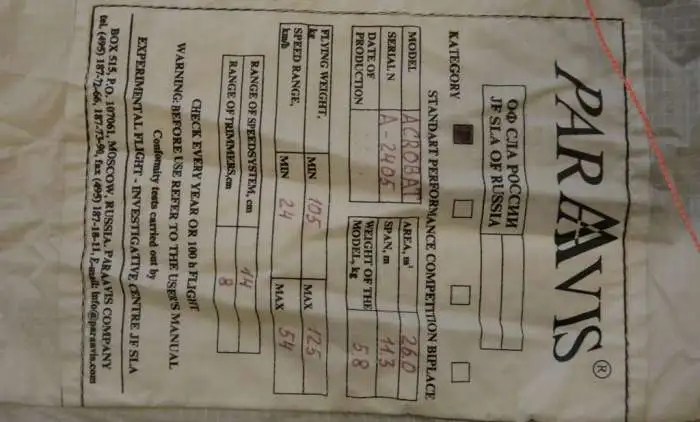 PARAAVIS®
ОФ СЛА РОССИИ
JF SLA OF RUSSIA
KATEGORY
STANDART PERFORMANCE COMPETITION BIPLACE
MODEL ACROBAT
SERIAL N A-2405
DATE OF PRODUCTION
AREA, m² 26.0
SPAN, m 11.3
WEIGHT OF THE MODEL, kg 5.8
FLYING WEIGHT, kg MIN 105 MAX 125
SPEED RANGE, km/h MIN 24 MAX 54
RANGE OF SPEEDSYSTEM, cm 14
RANGE OF TRIMMERS, cm 8
CHECK EVERY YEAR OR 100 h FLIGHT
WARNING: BEFORE USE REFER TO THE USER'S MANUAL
Conformity tests carried out by
EXPERIMENTAL FLIGHT - INVESTIGATIVE CENTRE JF SLA
BOX 515, P.O. 107061, MOSCOW, RUSSIA, PARAAVIS COMPANY
tel. (495) 187-72-66, 187-73-90, fax (495) 187-18-11, E-mail: info@paraavis.com